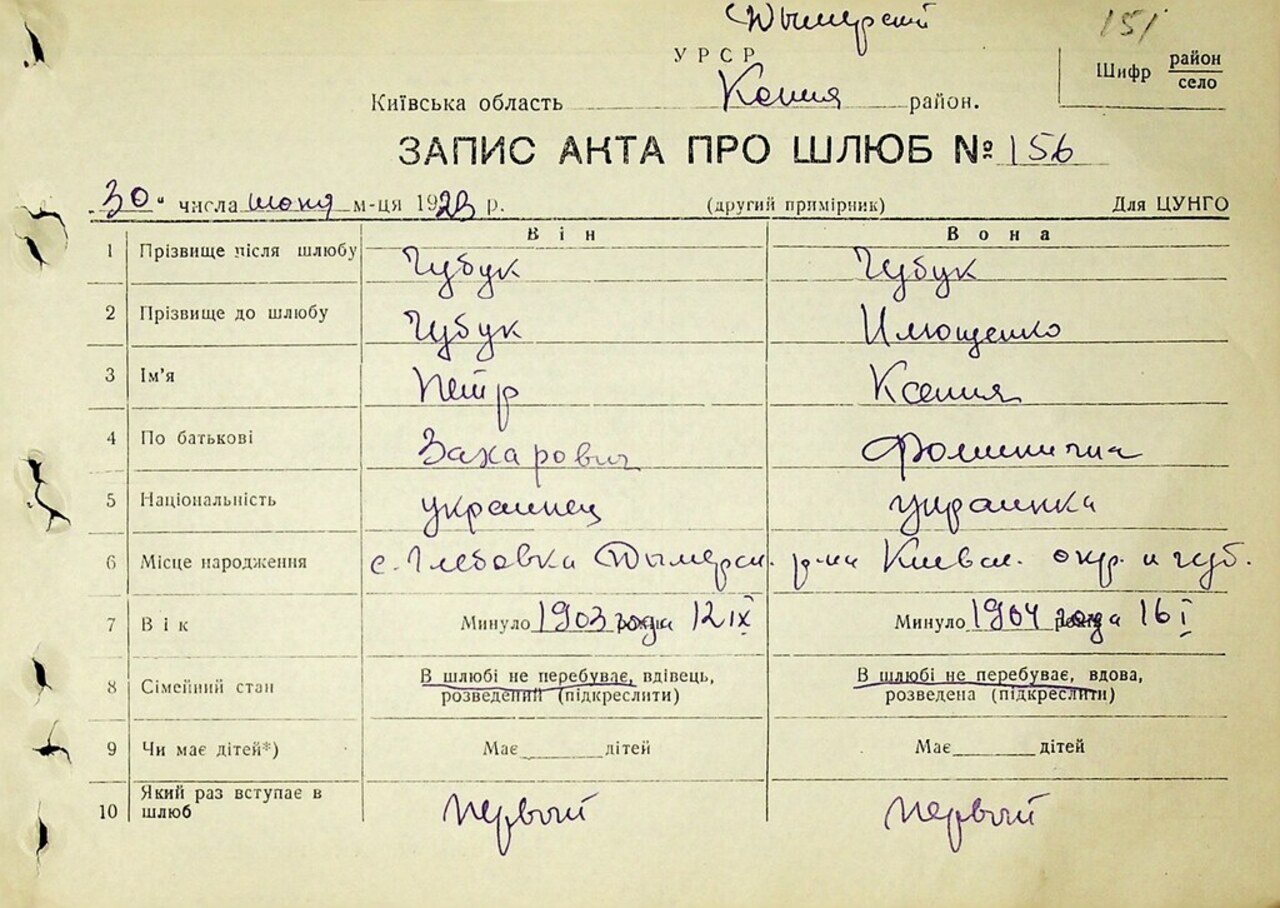 Дымерский
151
У Р С Р
Шифр район
село
Київська область Копия район.
ЗАПИС АКТА ПРО ШЛЮБ № 156
"30" числа июня м-ця 1923 р. (другий примірник) Для ЦУНГО
Він Вона
1 Прізвище після шлюбу Чубук Чубук
2 Прізвище до шлюбу Чубук Илющенко
3 Ім'я Петр Ксения
4 По батькові Захарович Фоминична
5 Національність украинец украинка
6 Місце народження с. Глебовка Дымерск. р-на Киевск. окр. и губ.
7 Вік Минуло 1903 года 12 IX Минуло 1904 года 16 I
8 Сімейний стан В шлюбі не перебуває, вдівець, В шлюбі не перебуває, вдова,
розведений (підкреслити) розведена (підкреслити)
9 Чи має дітей*) Має дітей Має дітей
10 Який раз вступає в
шлюб первый первый